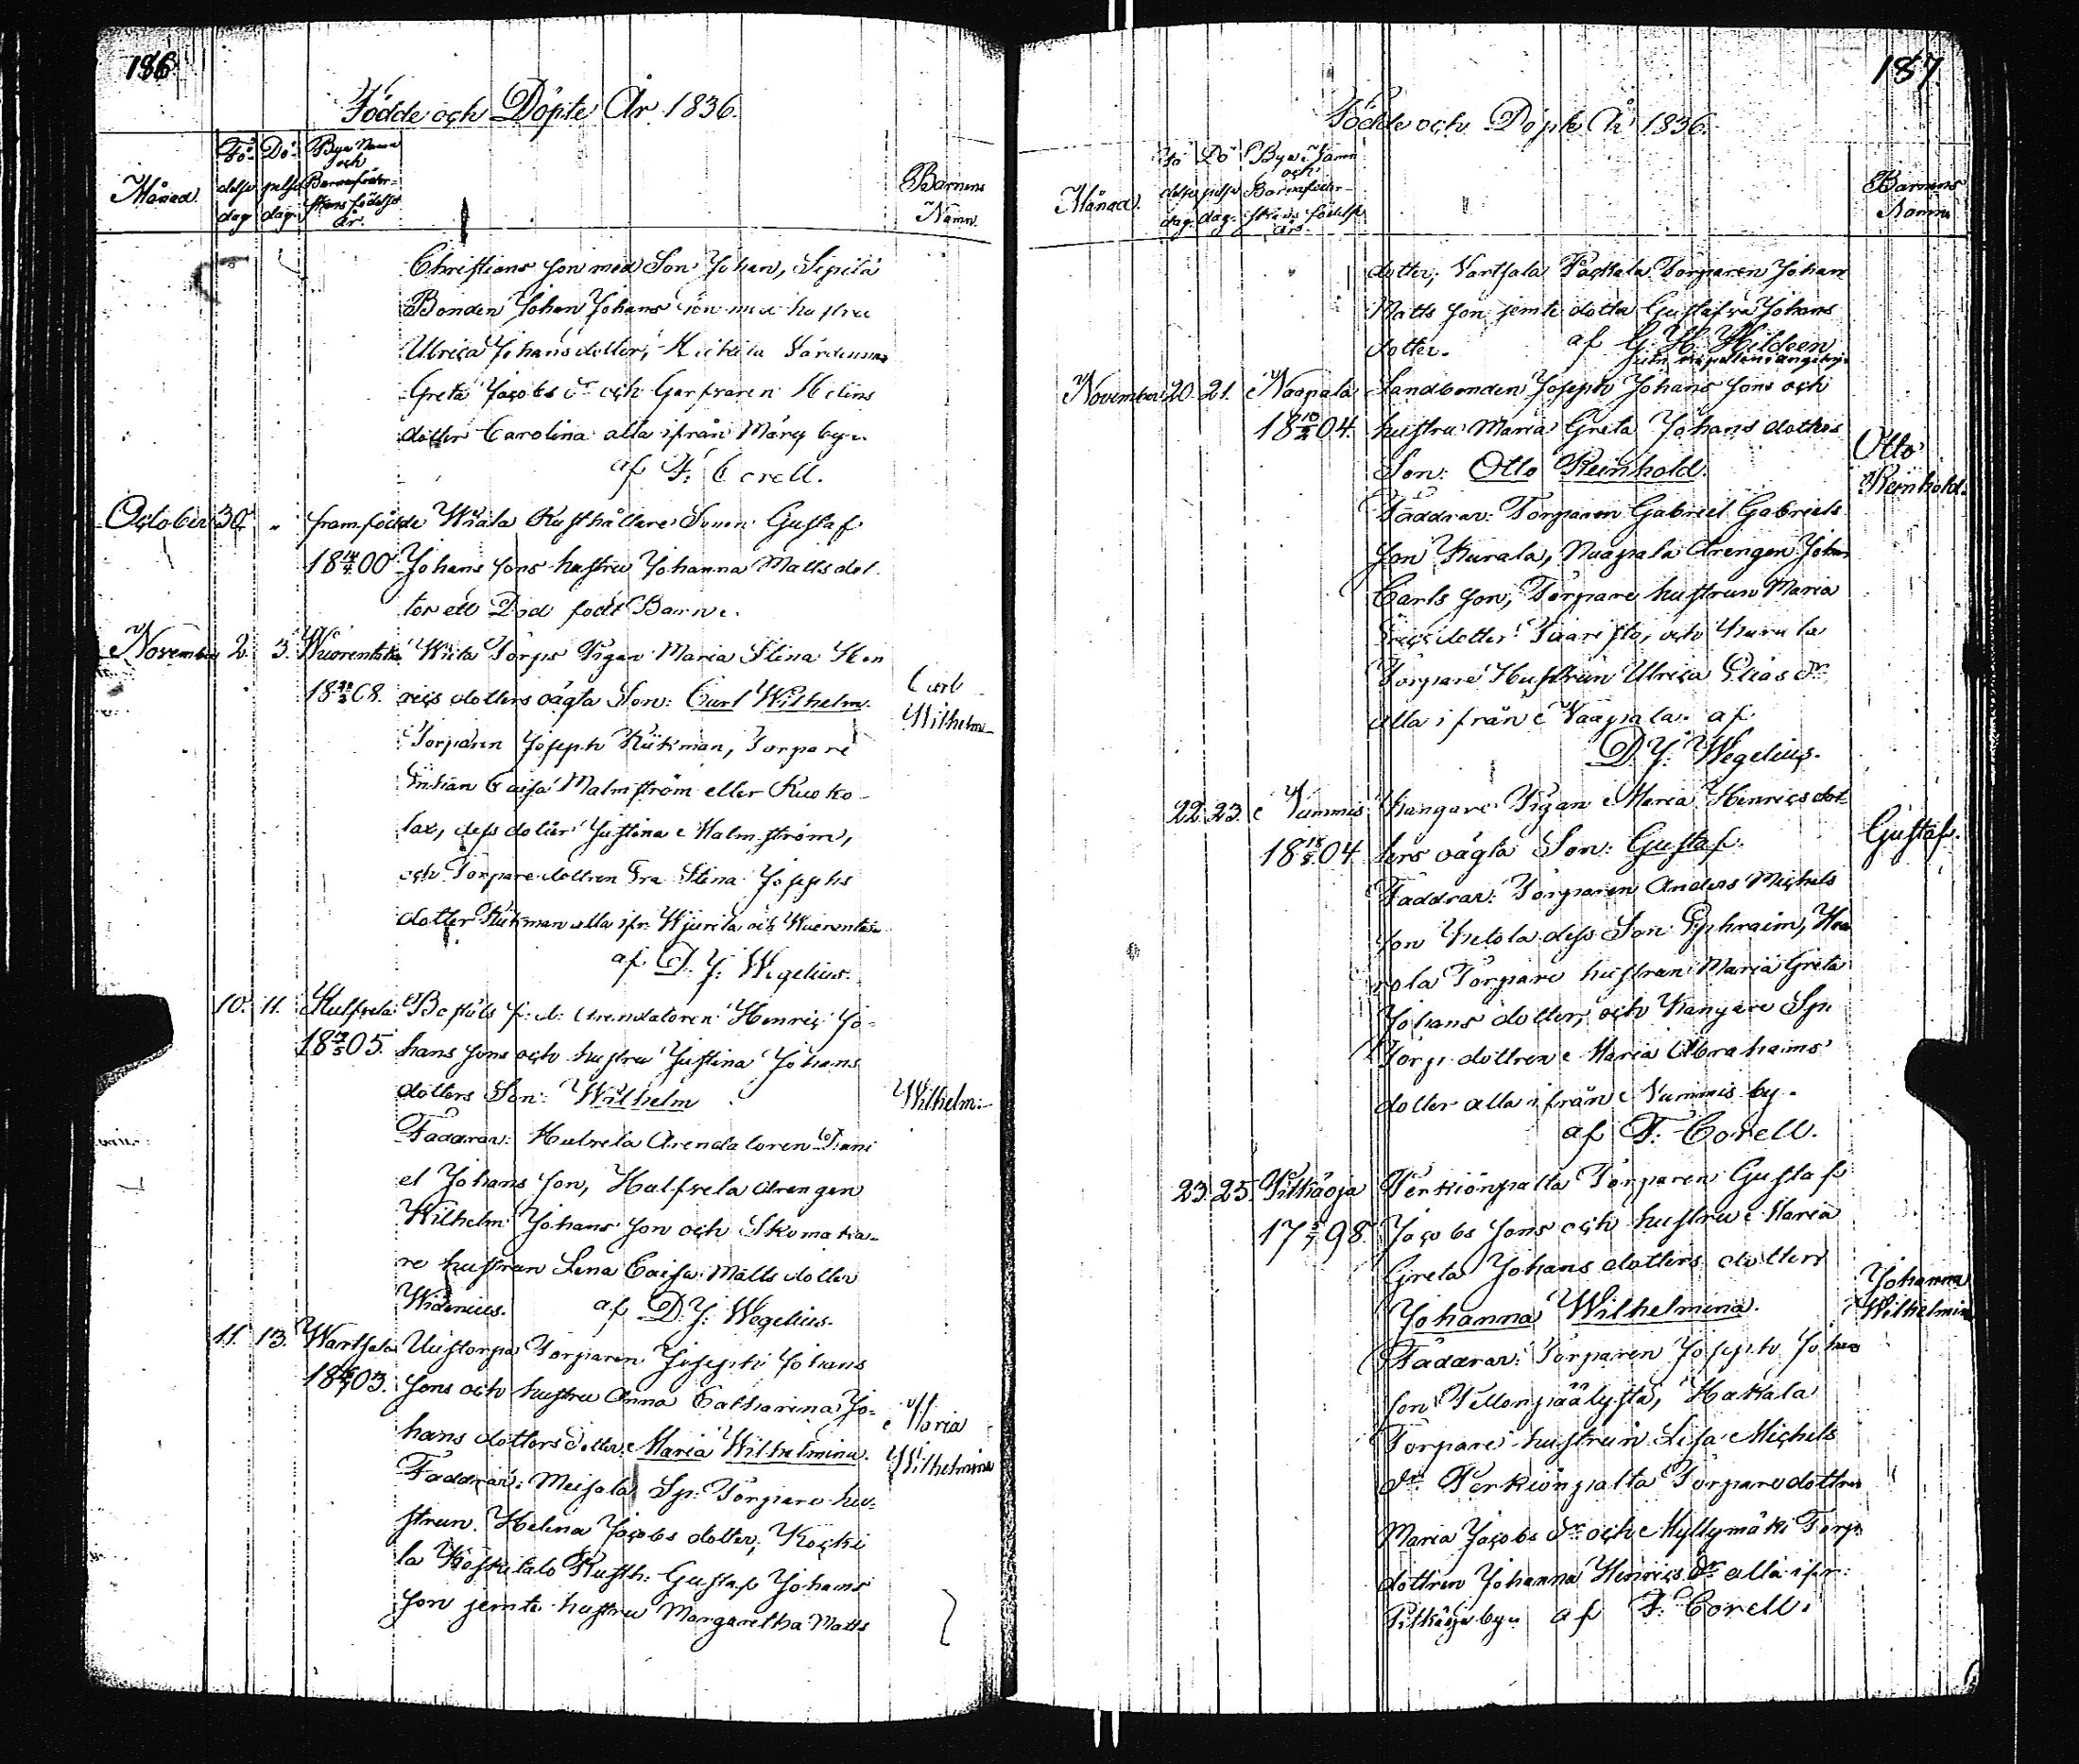 186.
Födde och Döpte År 1836.
Månad.
Fö-
delse
dag
Dö-
pelse
dag.
Bya Namn
och
Barnaföder-
skans födelse
år.
Barnens
Namn.
Christians son med Son Johan, Sipilä
Bonden Johan Johans son med hustru
Ulrica Johansdotter,
Greta Jacobs dr och Garfvaren
dotter Carolina alla ifrån by.
af F: Corell.
October 30. " framfödde Wiala Rusthållare Sonen Gustaf
18 00 Johans sons hustru Johanna Mattsdot-
ter ett Död födt Barn.
November 2. 3. Torps Pigan Maria Stina Hen
18 08. rics dotters oägta Son: Carl Wilhelm.
Carl
Wilhelm
Torparen Joseph Kükman, Torpare
Enkan Caisa Malmström eller
lax, dess dotter Justina Malmström,
och Torpare dottren Eva Stina Josephs
dotter Kükman alla ifr:
af D. J: Wegelius.
10. 11. Hulfvela Boställs Arendatoren Henric Jo-
18 05. hans sons och hustru Justina Johans
dotters Son: Wilhelm
Wilhelm:
Faddrar: Arendatoren Dani
el Johans son, Hulfvela drengen
Wilhelm Johans son och Skomaka-
re hustrun Lena Caisa Matts dotter
Widenius. af D. J: Wegelius.
11. 13. Wartsala Uustorpa Torparen Joseph Johans
18 03. sons och hustru Anna Catharina Jo-
hans dotters dotter Maria Wilhelmina.
Maria
Wilhelmina
Faddrar: Meisala Sp: Torpare hu-
strun Helena Jacobs dotter, Kocki
la Rusth: Gustaf Johans
son jemte hustru Margaretha Matts
187
Födde och Döpte År 1836.
Månad.
Fö
delse
dag.
Dö
pelse
dag.
Bya Namn
och
Barnaföder-
skans födelse
års
Barnens
Namn
dotter, Vartsala Torparen Johan
Matts son jemte dotter Gustafva Johans
dotter. af G. H. Hildeen
November 20. 21. Naapala Landbonden Joseph Johans sons och
18 04. hustru Maria Greta Johans dotters
Son: Otto Reinhold.
Otto
Reinhold.
Faddrar: Torparen Gabriel Gabriels
son Kurala, Naapala drengen Johan
Carls son, Torpare hustrun Maria
Erics dotter och Kurala
Torpare Hustrun Ulrica Elias dr
alla ifrån Naapala. af
D. J: Wegelius.
22. 23. Nummis Kangare Pigan Maria Henrics dot-
18 04 ters oägta Son: Gustaf.
Gustaf.
Faddrar: Torparen Anders Michels
son Ketola dess Son Ephraim,
rola Torpare hustrun Maria Greta
Johans dotter, och Kangare Sp:
Torp. dottren Maria Abrahams
dotter alla ifrån Nummis by.
af F: Corell.
23. 25. Pitkäoja Perkiönpalta Torparen Gustaf
17 98. Jacobs sons och hustru Maria
Greta Johans dotters dotter
Johanna Wilhelmina.
Johanna
Wilhelmina
Faddrar: Torparen Joseph Johans
son Hakala
Torpare hustrun Lisa Michels
dr Perkiönpalta Torpare dottren
Maria Jacobs dr och Myllymäki Torp:
dottren Johanna Henrics dr alla ifr:
Pitkäoja by. af F. Corell.